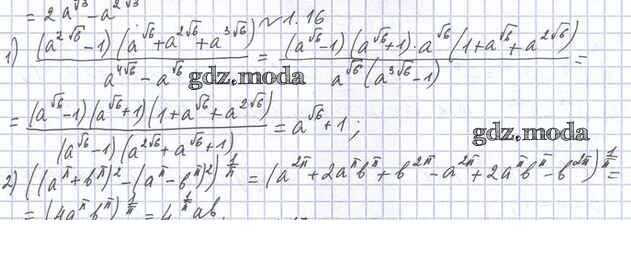 = 2a^{√3} - a^{2√3}
№ 1.16
1) \frac{(a^{2√6} - 1)(a^{√6} + a^{2√6} + a^{3√6})}{a^{4√6} - a^{√6}} = \frac{(a^{√6} - 1)(a^{√6} + 1) · a^{√6}(1 + a^{√6} + a^{2√6})}{a^{√6}(a^{3√6} - 1)} =
gdz.moda
= \frac{(a^{√6} - 1)(a^{√6} + 1)(1 + a^{√6} + a^{2√6})}{(a^{√6} - 1)(a^{2√6} + a^{√6} + 1)} = a^{√6} + 1;
gdz.moda
2) ((a^π + b^π)^2 - (a^π - b^π)^2)^{\frac{1}{π}} = (a^{2π} + 2a^π b^π + b^{2π} - a^{2π} + 2a^π b^π - b^{2π})^{\frac{1}{π}} =
= (4a^π b^π)^{\frac{1}{π}} = 4^{\frac{1}{π}} ab.